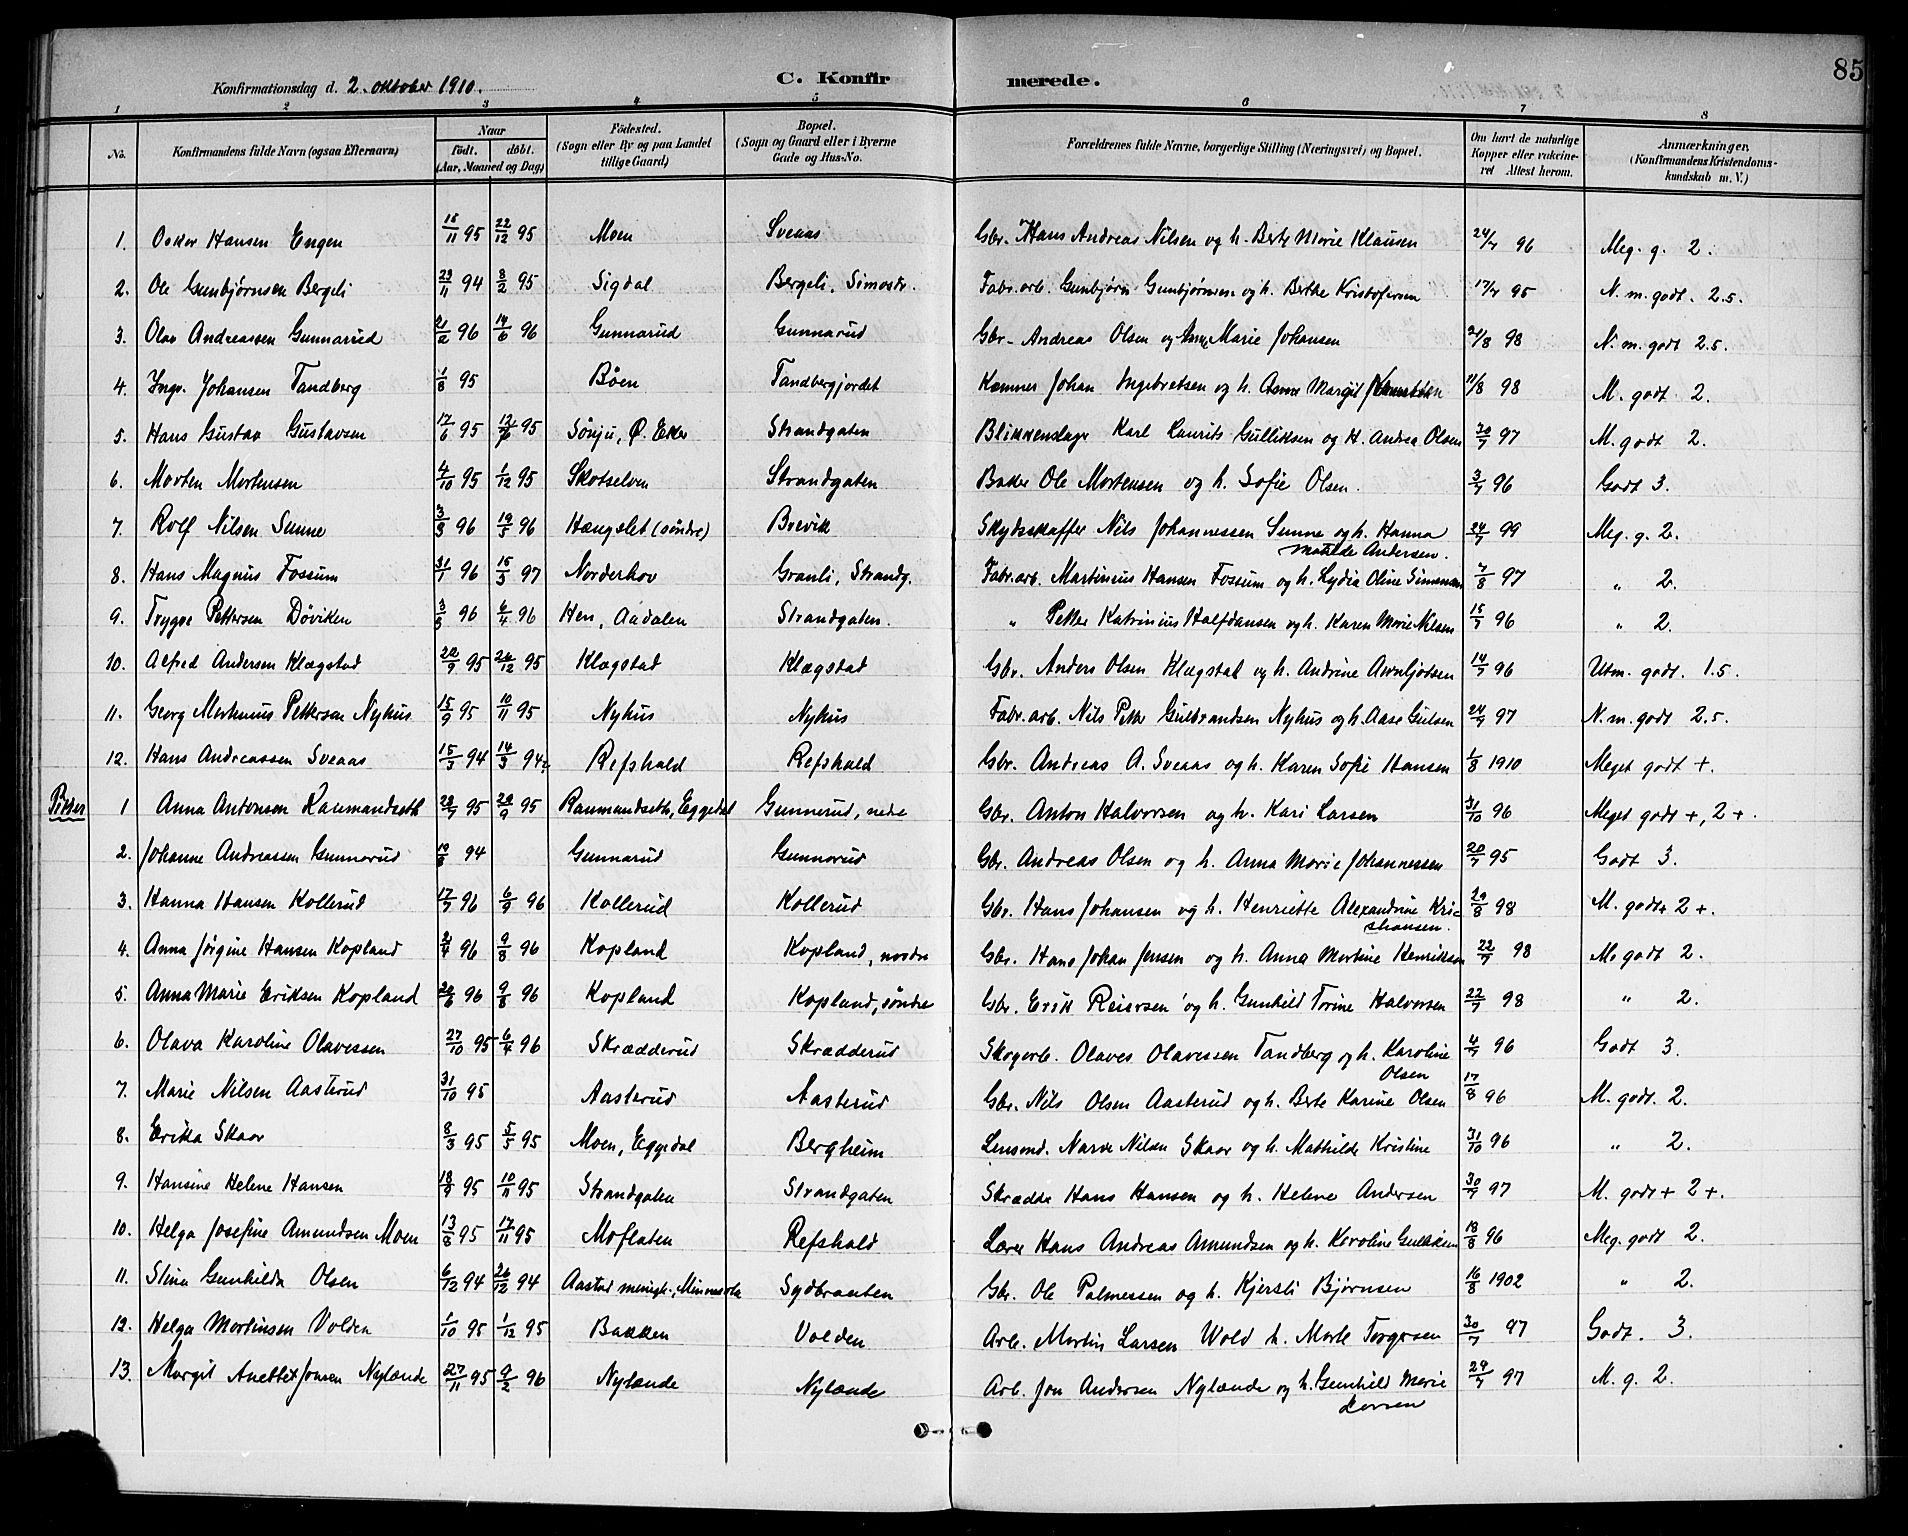 85
Konfirmationsdag d. 2. oktober 1910. C. Konfirmerede.
1 2 3 4 5 6 7 8
No. Konfirmandens fulde Navn (ogsaa Efternavn) Naar födt. döbt. (Aar, Maaned og Dag) Födested. (Sogn eller By og paa Landet tillige Gaard) Bopæl. (Sogn og Gaard eller i Byerne Gade og Hus-No. Forældrenes fulde Navne, borgerlige Stilling (Næringsvei) og Bopæl. Om havt de naturlige Kopper eller vakcineret Attest herom. Anmærkninger. (Konfirmandens Kristendomskundskab m. V.)
1. Oskar Hansen Engen 15/11 95 22/12 95 Moen Sveaas Gbr. Hans Andreas Nilsen og h. Berte Marie Klausen 24/7 96 Meg. g. 2.
2. Ole Gunbjørnsen Bergeli 29/11 94 8/2 95 Sigdal Bergeli, Simostr. Fabr. arb. Gunbjørn Gunbjørnsen og h. Berthe Kristofersen 17/7 95 N. m. godt. 2.5.
3. Olav Andreassen Gunnarud 21/2 96 14/6 96 Gunnarud Gunnarud Gbr. Andreas Olsen og Anne Marie Johansen 21/8 98 N. m. godt 2.5.
4. Ingv. Johansen Tandberg 1/8 95 Bøen Tandbergjordet Johan Ingebretsen og h. Anne Margit 11/8 98 M. godt 2.
5. Hans Gustav Gustavsen 17/6 95 95 Sønju, Ø. Eker Strandgaten Blikkenslager Karl Laurits Gulliksen og h. Andrea Olsen 30/7 97 M. godt 2.
6. Morten Mortensen 4/10 95 1/12 95 Skotselven Strandgaten Baker Ole Mortensen og h. Sofie Olsen. 3/7 96 Godt 3.
7. Rolf Nilsen Sunne 3/3 96 19/5 96 Hængslet (søndre) Brevik Skydsskaffer Nils Johannessen Sunne og h. Hanna
Matilde Andersen. 24/7 99 Meg. g. 2.
8. Hans Magnus Fossum 31/1 96 15/3 97 Norderhov Granli, Strandg. Fabr. arb. Martinius Hansen Fossum og h. Lydia Oline Simensen 7/8 97 " 2.
9. Trygve Pettersen Døviken 3/3 96 6/4 96 Hen, Aadalen Strandgaten. " Petter Katrinius Halfdansen og h. Karen Marie Nilsen 15/7 96 " 2.
10. Alfred Andersen Klægstad 22/9 95 26/12 95 Klægstad Klægstad Gbr. Anders Olsen Klægstad og h. Andrine Arnljotsen 14/7 96 Utm. godt. 1.5.
11. Georg Martinius Pettersen Nyhus 15/9 95 10/11 95 Nyhus Nyhus Fabr. arb. Nils Petter Gulbrandsen Nyhus og h. Aase Gulsen 24/7 97 N. m. godt 2.5.
12. Hans Andreassen Sveaas 15/3 94 14/3 94? Refshald Refshald Gbr. Andreas A. Sveaas og h. Karen Sofie Hansen 1/8 1910 Meget godt +.
Piker
1 Anna Antonsen Raumandseth 22/7 95 29/9 95 Raumandseth, Eggedal Gunnerud, nedre Gbr. Anton Halvorsen og h. Kari Larsen 31/10 96 Meget godt +, 2 +.
2. Johanne Andreassen Gunnarud 19/8 94 Gunnarud Gunnarud Gbr. Andreas Olsen og h. Anna Marie Johannessen 20/7 95 Godt 3.
3. Hanna Hansen Kollerud 17/7 96 6/9 96 Kollerud Kollerud Gbr. Hans Johansen og h. Henriette Alexandrine Kri-
stiansen. 20/8 98 M. godt + 2 +.
4. Anna Jørgine Hansen Kopland 2/4 96 9/8 96 Kopland Kopland, nordre Gbr. Hans Johan Jensen og h. Anna Martine Henriksen 22/7 98 M. godt 2.
5. Anna Marie Eriksen Kopland 20/6 96 9/8 96 Kopland Kopland, søndre Gbr. Erik Reiersen og h. Gunhild Torine Halvorsen 22/7 98 " 2.
6. Olava Karoline Olavessen 27/10 95 6/4 96 Skrædderud Skrædderud Skogarb. Olaves Olavessen Tandberg og h. Karoline
Olsen 4/7 96 Godt 3.
7. Marie Nilsen Aasterud 31/10 95 Aasterud Aasterud Gbr. Nils Olsen Aasterud og h. Berte Karine Olsen 17/8 96 M. godt. 2.
8. Erika Skaar 8/3 95 5/5 95 Moen, Eggedal Bergheim Lensmd. Narve Nilsen Skaar og h. Mathilde Kristine 31/10 96 " 2.
9. Hansine Helene Hansen 18/9 95 10/11 95 Strandgaten Strandgaten Skrædder Hans Hansen og h. Helene Andersen 30/7 97 M. godt + 2 +.
10. Helga Josefine Amundsen Moen 13/8 95 17/11 95 Moflaten Refshald Lærer Hans Andreas Amundsen og h. Karoline Gulliksen 18/8 96 Meg. godt 2.
11. Stina Gunhilda Olsen 6/12 94 26/12 94 Aastad menigh., Minnesota Sydbraaten Gbr. Ole Palmessen og h. Kjersti Bjørnsen 16/8 1902 " 2.
12. Helga Martinsen Volden 5/10 95 1/12 95 Bakken Volden Arb. Martin Larsen Wold h. Marte Torgersen 30/7 97 Godt. 3.
13. Margit Anette Jonsen Nylænde 27/11 95 9/2 96 Nylænde Nylænde Arb. Jon Andersen Nylænde og h. Gunhild Marie
Larsen 29/7 97 M. g. 2.